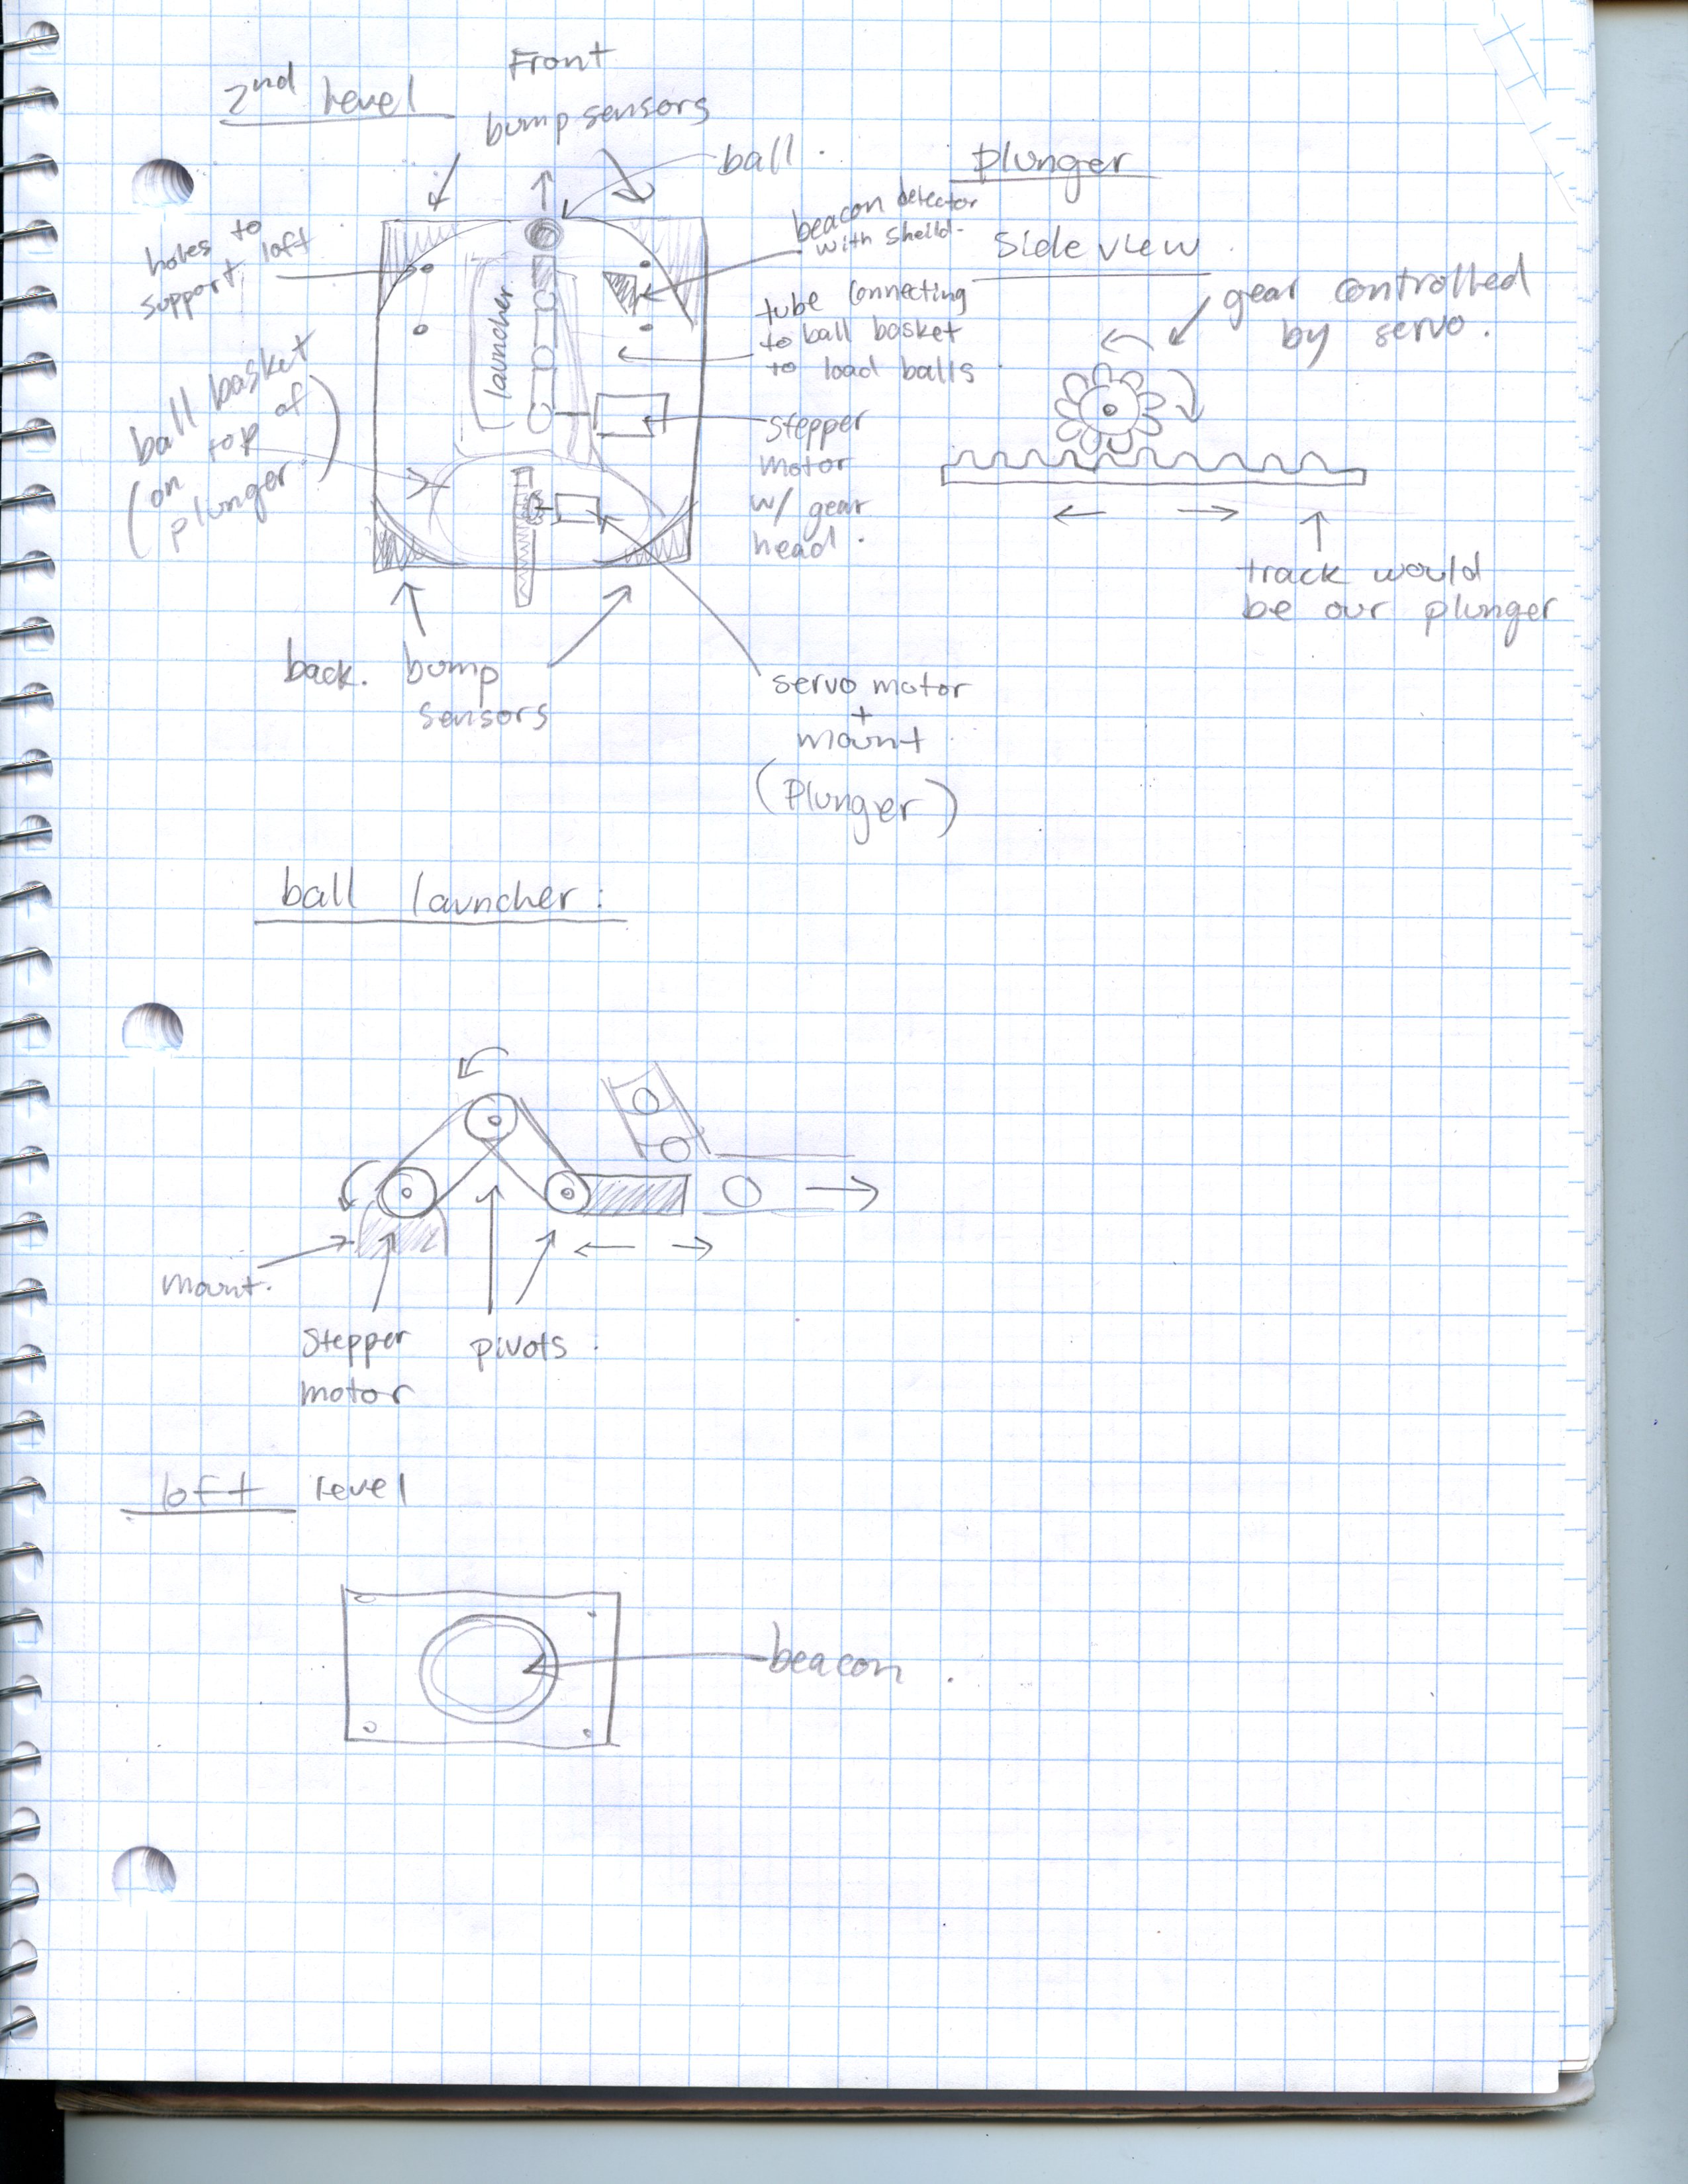 2nd level
Front
bump sensors
ball.
holes to
support loft
launcher
beacon detector
with sheild.
tube connecting
to ball basket
to load balls
ball basket
(on top of
plunger.)
stepper
motor
w/ gear
head.
back. bump
sensors
servo motor
+
mount
(Plunger)
plunger
Side view
gear controlled
by servo.
track would
be our plunger
ball launcher:
mount.
Stepper
motor
pivots.
loft level
beacon.